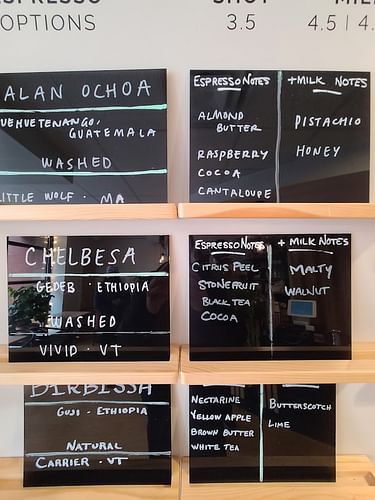 OPTIONS
3.5
4.5 | 4.
ALAN OCHOA
GUATEMALA
WASHED
LITTLE WOLF · MA
ESPRESSO NOTES
+MILK NOTES
ALMOND
BUTTER
RASPBERRY
COCOA
CANTALOUPE
PISTACHIO
HONEY
CHELBESA
GEDEB · ETHIOPIA
WASHED
VIVID · VT
ESPRESSO NOTES
+ MILK NOTES
CITRUS PEEL
STONEFRUIT
BLACK TEA
COCOA
MALTY
WALNUT
DIRBISSA
GUJI - ETHIOPIA
NATURAL
CARRIER · VT
NECTARINE
YELLOW APPLE
BROWN BUTTER
WHITE TEA
BUTTERSCOTCH
LIME